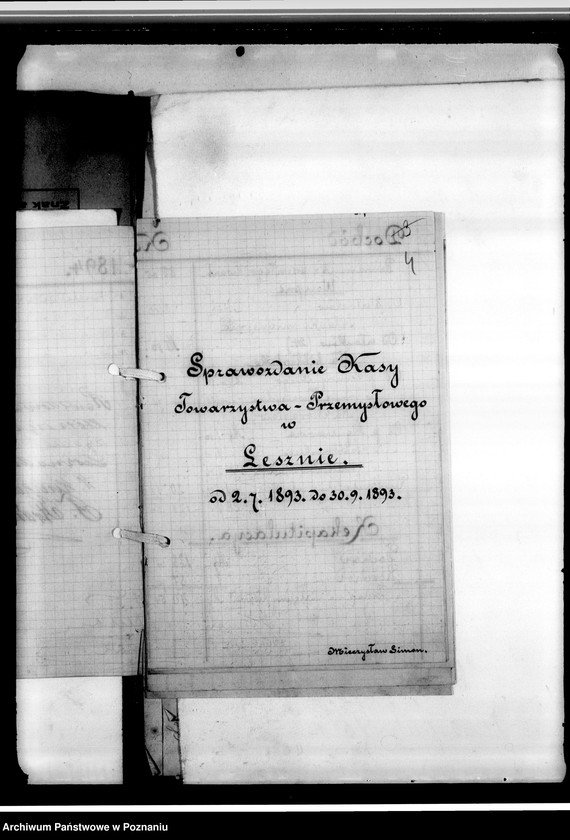 Znak a
4
Sprawozdanie Kasy
Towarzystwa - Przemysłowego
w
Lesznie.
od 2.7. 1893. do 30.9. 1893.
Mieczysław Simon.
Archiwum Państwowe w Poznaniu